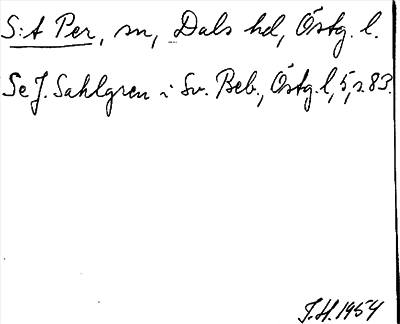 S:t Per, sn, Dals hd, Östg. l.
Se J. Sahlgren i Sv. Beb., Östg. l, 5, s. 83.
J.H. 1954